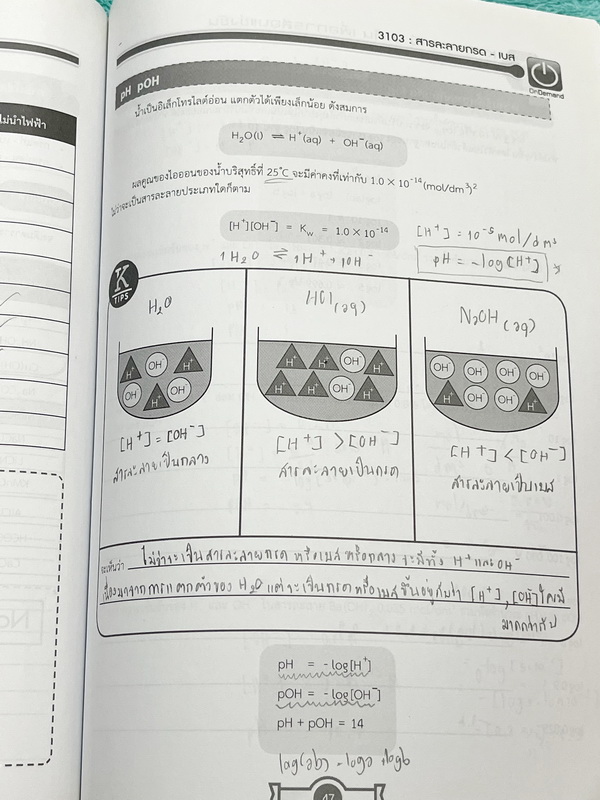 3103 : สารละลายกรด - เบส
OnDemand
pH pOH
น้ำเป็นอิเล็กโทรไลต์อ่อน แตกตัวได้เพียงเล็กน้อย ดังสมการ
ไม่นำไฟฟ้า
H₂O(l) ⇌ H⁺(aq) + OH⁻(aq)
ผลคูณของไอออนของน้ำบริสุทธิ์ที่ 25°C จะมีค่าคงที่เท่ากับ 1.0 × 10⁻¹⁴(mol/dm³)²
ไม่ว่าจะเป็นสารละลายประเภทใดก็ตาม
[H⁺][OH⁻] = Kw = 1.0 × 10⁻¹⁴
[H⁺] = 10⁻⁵ mol/dm³
1 H₂O ⇌ 1H⁺ + 1OH⁻
pH = -log[H⁺]
K
TIPS
H₂O
HCl (aq)
NaOH (aq)
H⁺ OH⁻ H⁺
OH⁻ H⁺ OH⁻
H⁺ H⁺ OH⁻ H⁺
H⁺ H⁺ OH⁻ H⁺
OH⁻ OH⁻ OH⁻ OH⁻
H⁺ OH⁻ OH⁻ H⁺
[H⁺] = [OH⁻]
[H⁺] > [OH⁻]
[H⁺] < [OH⁻]
สารละลายเป็นกลาง
สารละลายเป็นกรด
สารละลายเป็นเบส
จะเห็นว่า ไม่ว่าจะเป็นสารละลายกรด หรือเบส หรือกลาง จะมีทั้ง H⁺ และ OH⁻
เนื่องมาจากการแตกตัวของ H₂O แต่จะเป็นกรดหรือเบสขึ้นอยู่กับว่า [H⁺], [OH⁻] ใครมี
มากกว่ากัน
pH = -log[H⁺]
pOH = -log[OH⁻]
pH + pOH = 14
log(ab) = loga + logb
47